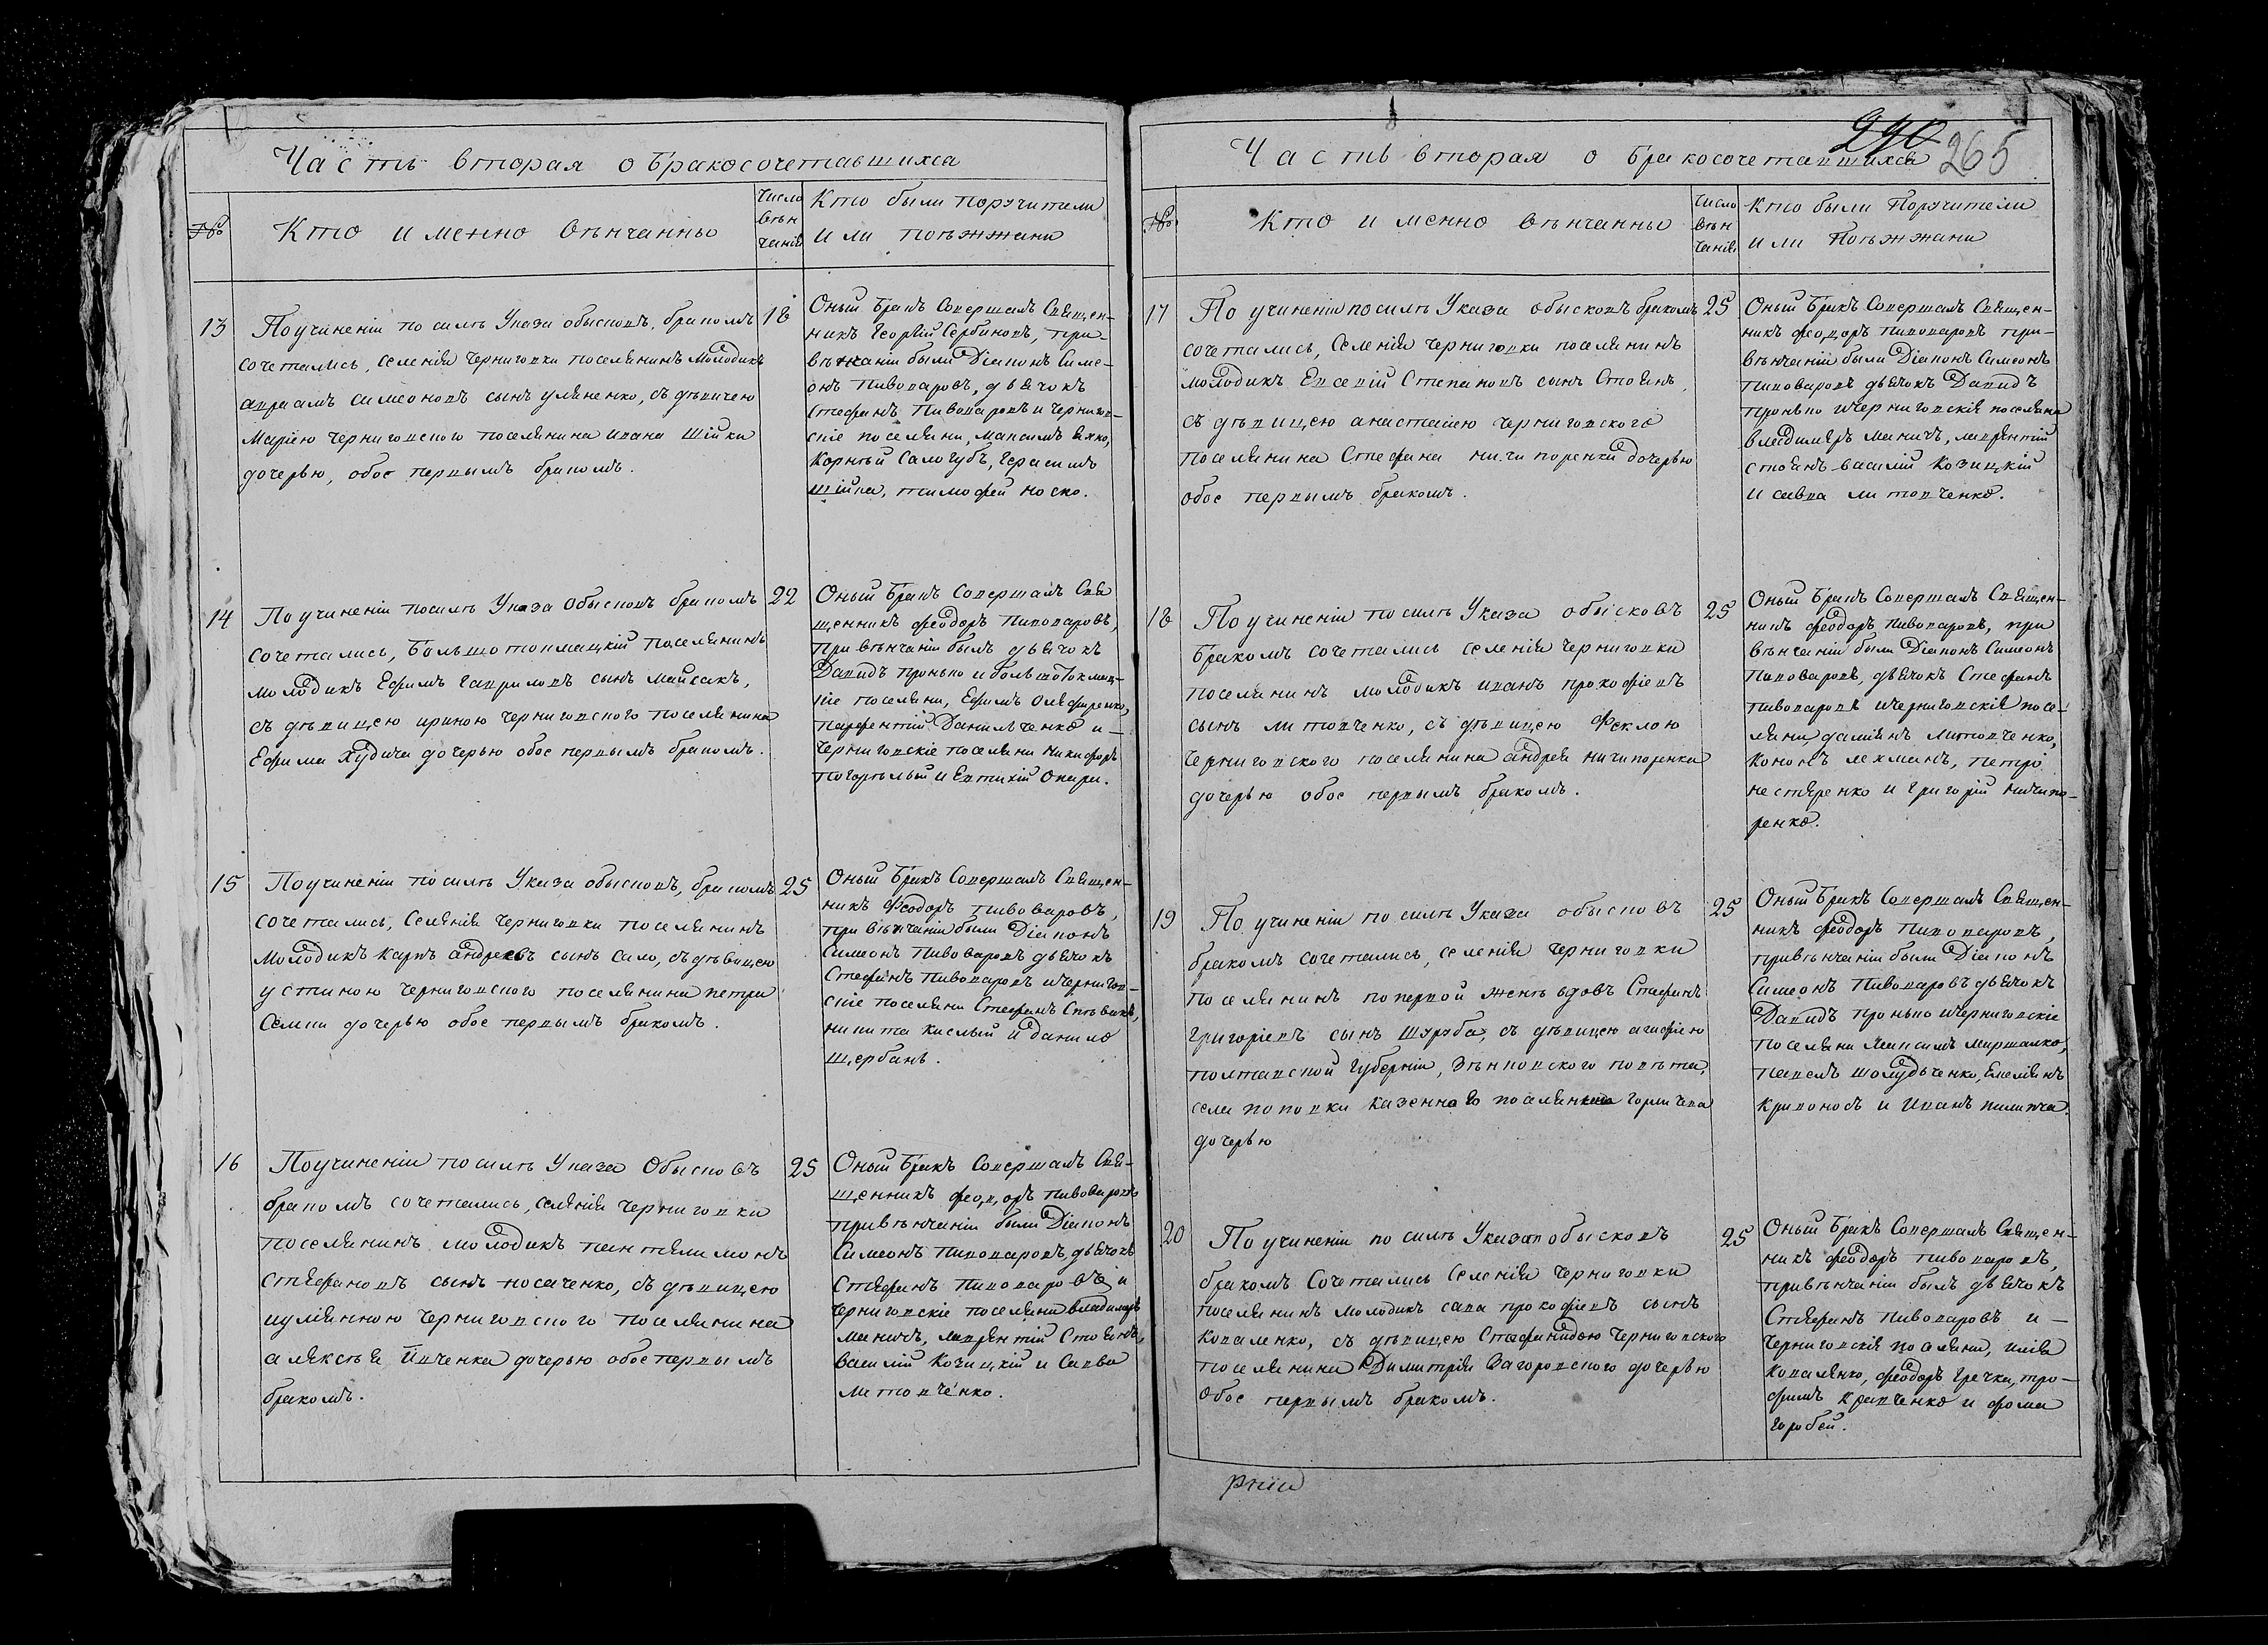 Часть вторая о бракосочетавшихся
№
Кто именно венчанны
число
вѣн
чанія
Кто были поручители
или поѣзжжани
13
По учиненіи по силѣ Указа обысковъ, бракомъ
сочетались, селенія черниговки поселянинъ молодикъ
авраамъ симеоновъ сынъ уляненко, съ дѣвицею
маріею черниговского поселянина ивана Шійки
дочерью, обое первымъ бракомъ.
18
Оный бракъ Совершалъ Священ-
никъ Георгій Сербиновъ, при
были Діаконъ Симе-
онъ Пивоваровъ, дьячокъ
Стефанъ Пивоваровъ и чернигов-
скіе поселяни, Максимъ
Корнѣй Салогубъ, Герасимъ
Шійка, тимофей носко.
14
По учиненіи посилѣ Указа Обысковъ бракомъ
сочетались, Большотокмацкій поселянинъ
молодикъ Ефимъ Гавриловъ сынъ Майсакъ,
съ дѣвицею ириною черниговского поселянина
Ефима Худича дочерью обое первымъ бракомъ.
22
Оный бракъ Совершалъ Свя
щенникъ феодоръ Пивоваровъ,
при вѣнчаніи былъ дьячокъ
Давидъ пронько и большотокмац-
кіе поселяни, Ефимъ Олефиренко,
парфентій Данильченко и —
черниговскіе поселяни никифоръ
погорѣлый и Евтихій
15
По учиненіи по силѣ Указа обысковъ, бракомъ
сочетались, Селенія черниговки поселянинъ
молодикъ карпъ андреевъ сынъ Сало, съ дѣвицею
устиною черниговского поселянина петра
дочерью обое первымъ бракомъ.
25
Оный бракъ Совершалъ Священ-
никъ феодоръ пивоваровъ,
при вѣнчаніи были Діаконъ
Симеонъ Пивоваровъ дьячокъ
Стефанъ Пивоваровъ и чернигов-
скіе поселяни Стефанъ Спѣвакъ,
никита кислый и данило
щербанъ.
16
По учиненіи по силѣ Указа Обысковъ
бракомъ сочетались, селенія черниговки
поселянинъ молодикъ пантелимонъ
Стефановъ сынъ носаченко, съ дѣвицею
иуліянною черниговского поселянина
алексѣя Ивченка дочерью обое первымъ
бракомъ.
25
Оный бракъ Совершалъ Свя-
щенникъ феодоръ пивоваровъ
при вѣнчаніи были Діаконъ
Симеонъ Пивоваровъ, дьячокъ
Стефанъ Пивоваровъ и
черниговскіе поселяни владимиръ
маничъ, лаврентій Стоянъ,
василій Козицкій и Савва
литовченко.
290
265
Часть вторая о бракосочетавшихся
№
Кто именно венчанны
Число
вѣн
чанія
Кто были Поручители
или Поѣзжжани
17
По учиненіи по силѣ Указа обысковъ бракомъ
сочетались, Селенія черниговки поселянинъ
молодикъ Евсевій Степановъ сынъ Стоянъ,
съ дѣвицею анастасіею черниговского
поселянина Стефана ничипоренка дочерью
обое первымъ бракомъ.
25
Оный бракъ Совершалъ Священ-
никъ феодоръ пивоваровъ при-
вѣнчаніи были Діаконъ Симеонъ
пивоваровъ дьячокъ Давидъ
пронько и черниговскія поселяни
владимѣръ маничъ, лаврентій
стоянъ василій Козицкій
и савва литовченко.
18
По учиненіи по силѣ Указа обысковъ
бракомъ сочетались селенія черниговки
поселянинъ молодикъ иванъ прокофіевъ
сынъ литовченко, съ дѣвицею феклою
черниговского поселянина андрея ничипоренка
дочерью обое первымъ бракомъ.
25
Оный бракъ Совершалъ Священ-
никъ феодоръ пивоваровъ, при
вѣнчаніи были Діаконъ Симеонъ
Пивоваровъ, дьячокъ Стефанъ
пивоваровъ и черниговскія посе-
ляни, даміянъ литовченко,
кононъ лехманъ, петро
нестеренко и григорій ничипо-
ренко.
19
По учиненіи по силѣ Указа обысковъ
бракомъ сочетались, селенія черниговки
поселянинъ по первой женѣ вдовъ Стефанъ
григоріевъ сынъ шуруба, съ дѣвицею агафіею
полтавской губерніи, Зѣнковского повѣта,
села поповки казенного поселянина
дочерью
25
Оный бракъ Совершалъ Священ-
никъ феодоръ пивоваровъ,
при вѣнчаніи были Діаконъ
Симеонъ пивоваровъ дьячокъ
Давидъ пронько и черниговскіе
поселяни Максимъ маршалко,
павелъ шолудченко, Емеліянъ
кривоносъ и иванъ пилипча.
20
По учиненіи по силѣ Указа обысковъ
бракомъ Сочетались Селенія черниговки
поселянинъ молодикъ сава прокофіевъ сынъ
коваленко, съ дѣвицею Стефанидою черниговского
поселянина Димитрія Загоровского дочерью
обое первымъ бракомъ.
25
Оный бракъ Совершалъ Священ-
никъ феодоръ пивоваровъ,
при вѣнчаніи былъ дьячокъ
Стефанъ пивоваровъ и —
черниговскія поселяни, илія
коваленко, феодоръ гречка, тро-
фимъ кравченко и фома
горобей.